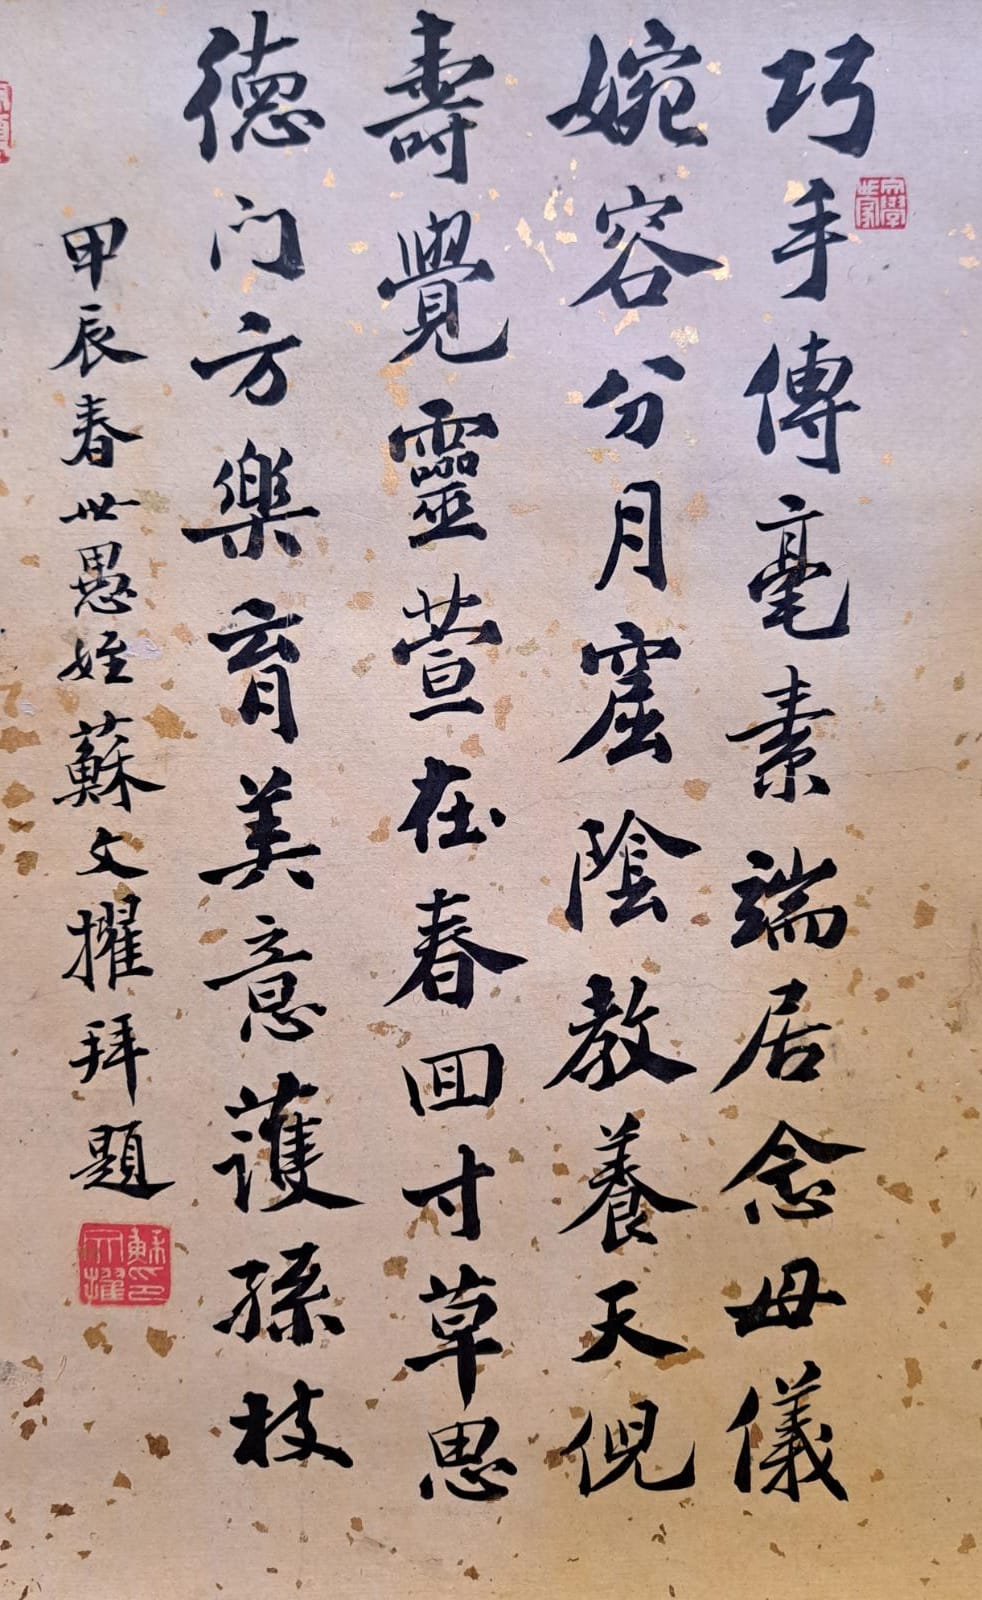 巧手傳毫素端居念母儀
婉容分月窟陰教養天倪
壽覺靈萱在春回寸草思
德门方樂育美意護孫枝
甲辰春世愚姪蘇文擢拜題
蘇文擢印